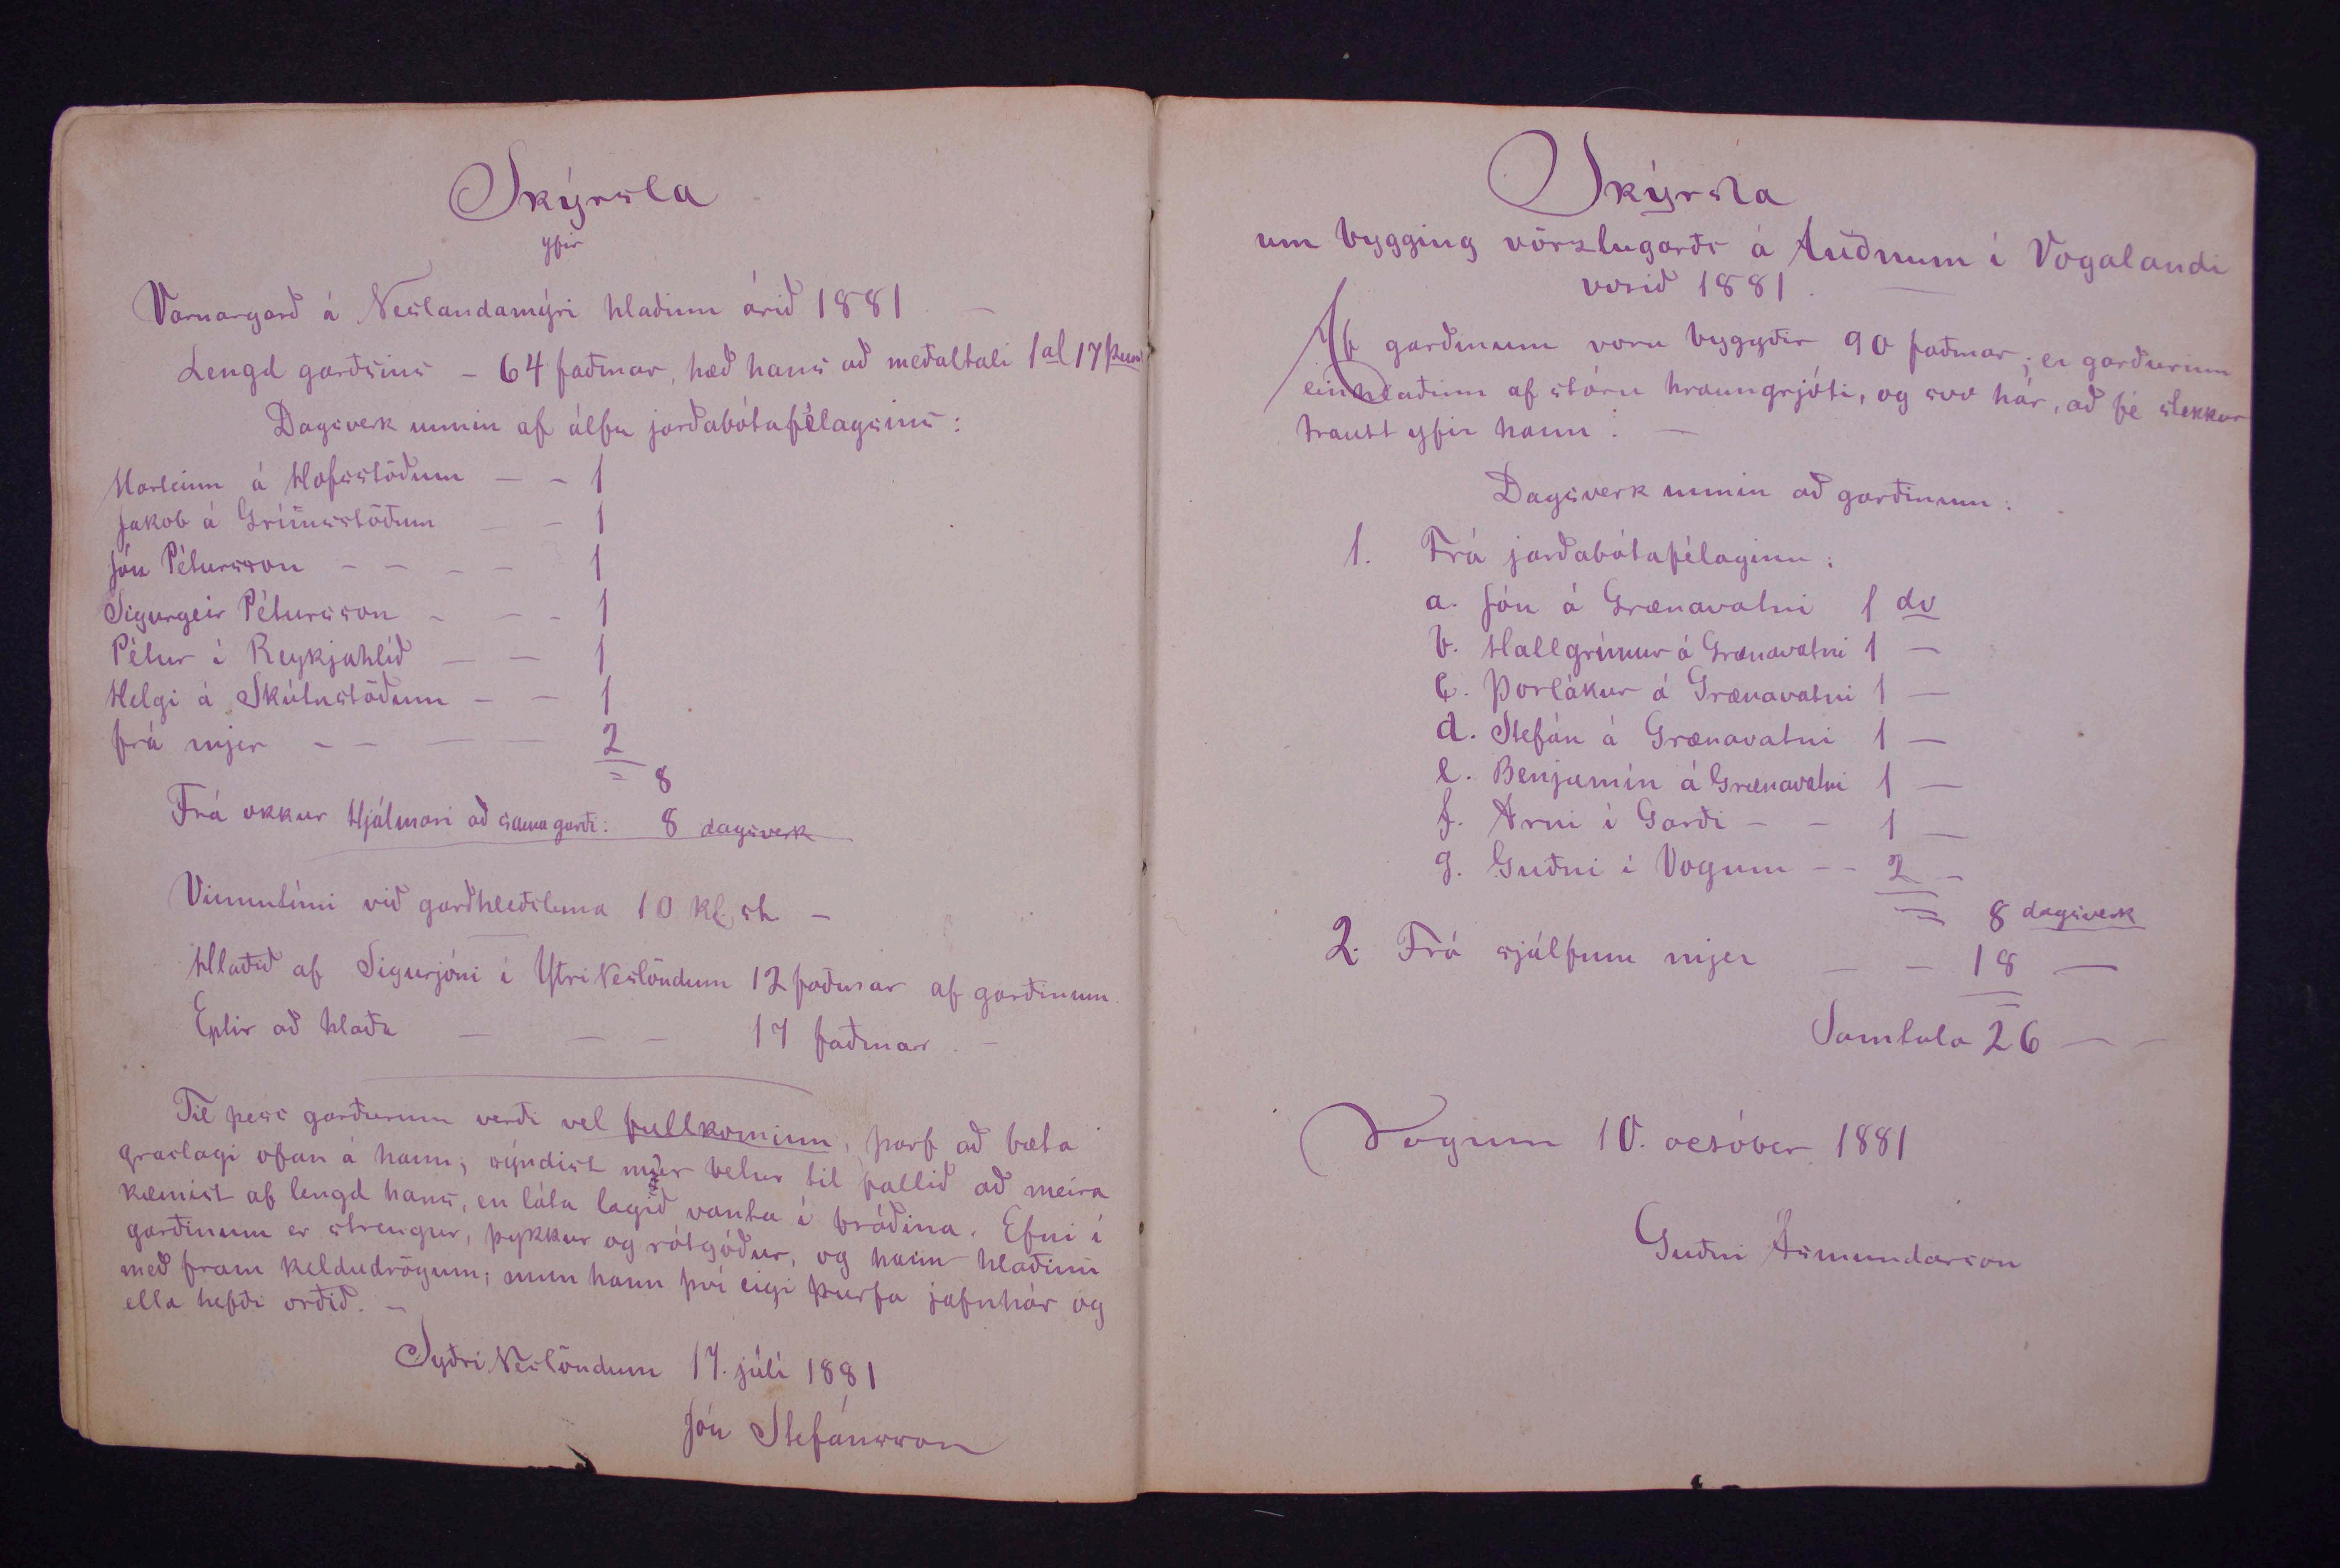 Skýrsla
yfir
Varnargarð á Neslandamýri hlaðinn árið 1881 -
Lengd garðsins - 64 faðmar, hæð hans að meðaltali 1 al 17 þuml
Dagsverk unnin af álfu jarðabótafélagsins:
Marteinn á Hofsstöðum - - 1
Jakob á Grímsstöðum - - 1
Jón Pétursson - - - - 1
Sigurgeir Pétursson - - - 1
Pétur í Reykjahlíð - - 1
Helgi á Skútustöðum - - 1
frá mjer - - - - 2
8
Frá okkur Hjálmari að sama garði: 8 dagsverk
Vinnutími við garðhleðsluna 10 kl. st. -
Hlaðið af Sigurjóni í Ytri Neslöndum 12 faðmar af garðinum.
Eptir að hlaða - - - 17 faðmar. -
Til þess garðurinn verði vel fullkominn, þarf að bæta
graslagi ofan á hann; sýndist mjer betur til fallið að meira
kæmist af lengd hans, en láta lagið vanta í bráðina. Efni í
garðinum er strengur, þykkur og rótgóður, og hann hlaðinn
með fram keldudrögum; mun hann því eigi þurfa jafnhár og
ella hefði orðið. -
Syðri Neslöndum 17. júlí 1881
Jón Stefánsson
Skýrsla
um bygging vörzlugarðs á Auðnum í Vogalandi
vorið 1881. -
Af garðinum voru byggðir 90 faðmar; er garðurinn
einhlaðinn af stóru hraungrjóti, og svo hár, að fé stekkur
trautt yfir hann. -
Dagsverk unnin að garðinum:
1. Frá jarðabótafélaginu:
a. Jón á Grænavatni 1 dv
b. Hallgrímur á Grænavatni 1 -
c. Þorlákur á Grænavatni 1 -
d. Stefán á Grænavatni 1 -
e. Benjamín á Grænavatni 1 -
f. Árni í Garði - - 1 -
g. Guðni í Vogum - - 2 -
8 dagsverk
2. Frá sjálfum mjer - - 18 -
Samtala 26 - -
Vogum 10. október 1881
Guðni Ásmundarson